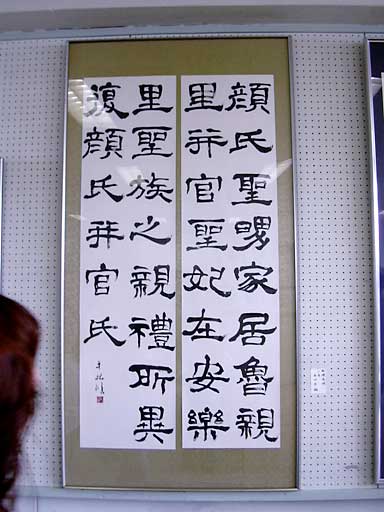 顔氏聖舅家居魯親
里并官聖妃在安樂
里聖族之親禮所異
復顔氏并官氏